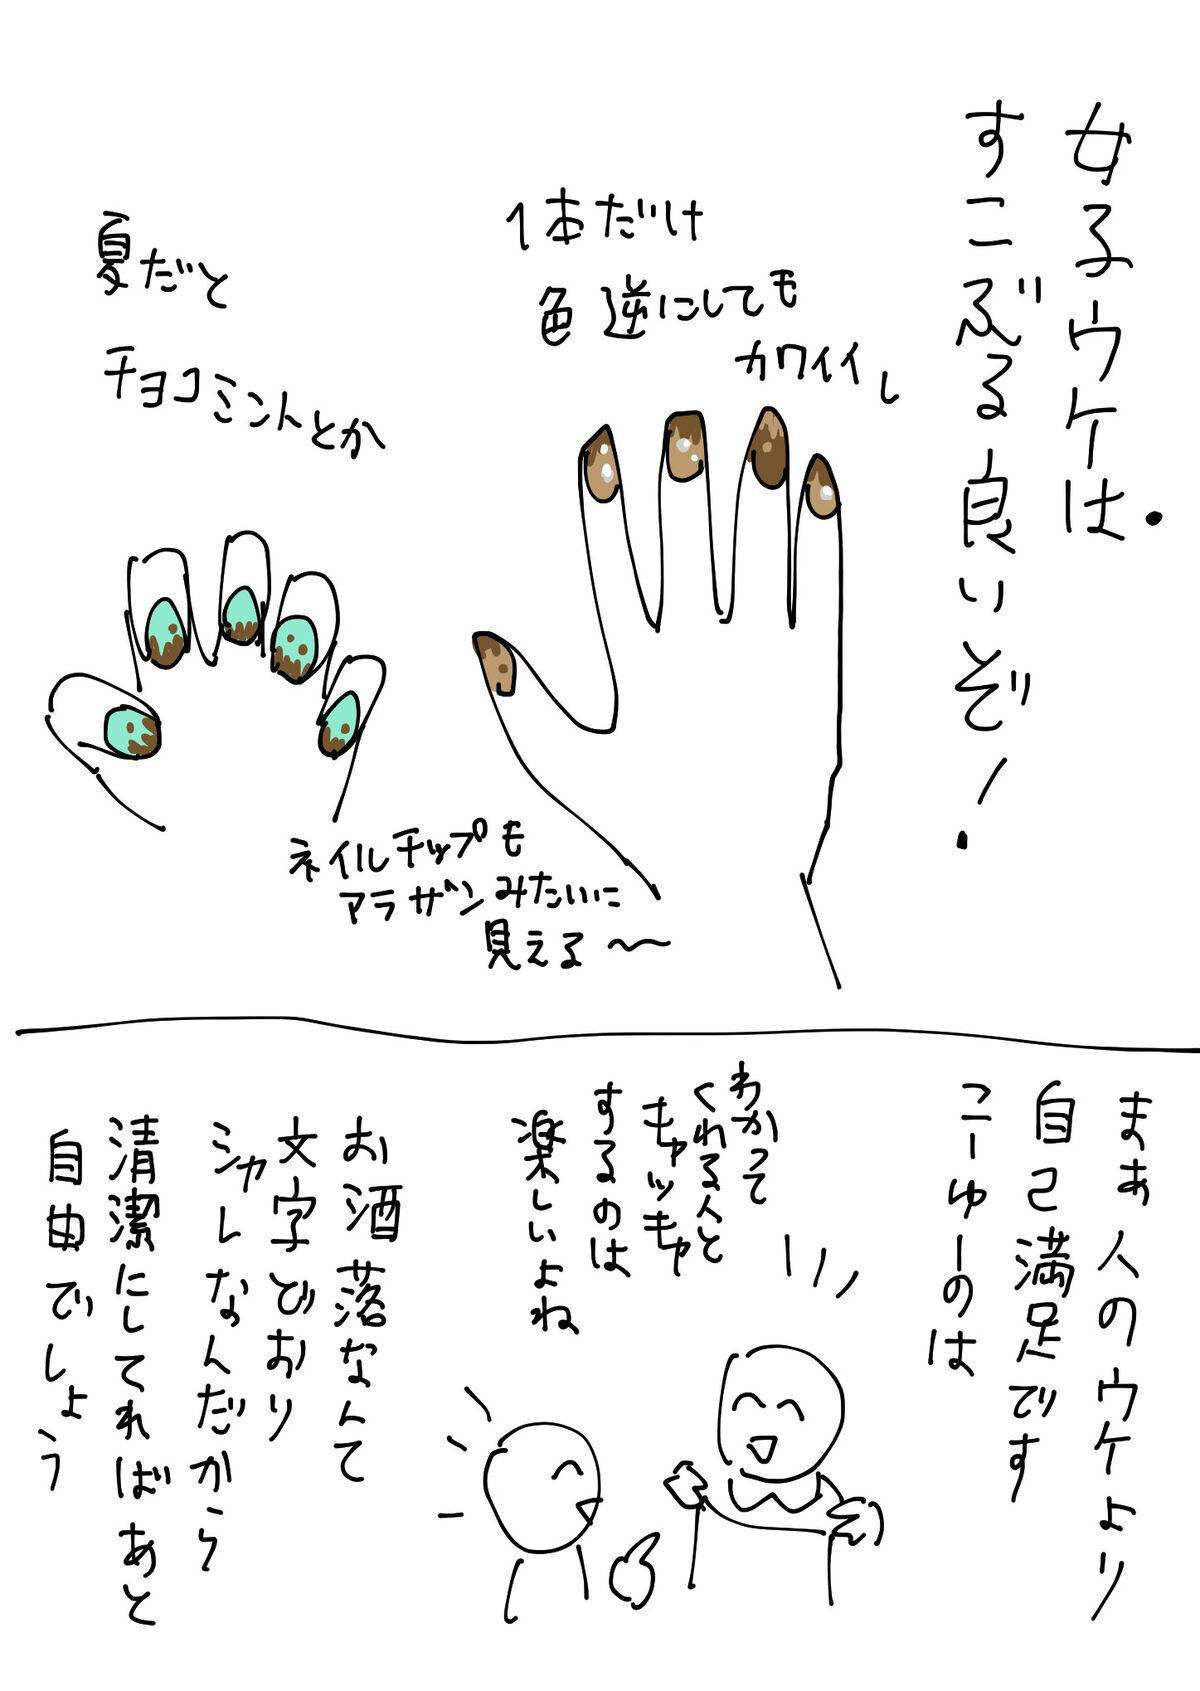 女子ウケは
すこぶる良いぞ！
1本だけ
色逆にしても
カワイイし
夏だと
チョコミントとか
ネイルチップも
アラザンみたいに
見える〜
まぁ人のウケより
自己満足です
こーゆーのは
わかって
くれる人と
キャッキャ
するのは
楽しいよね
お酒落なんて
文字どおり
シャレなんだから
清潔にしてればあと
自由でしょう